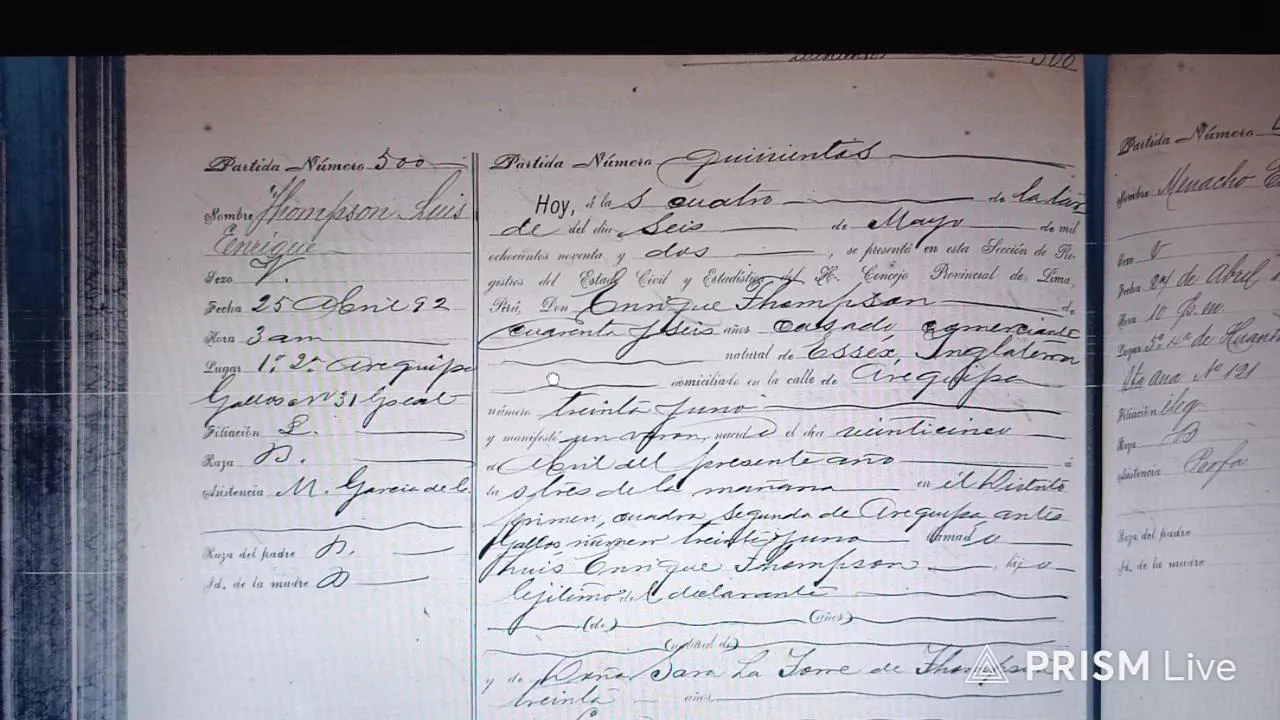 500
Partida Número 500
Nombre Thompson Luis
Enrique
Sexo V.
Fecha 25 Abril 92
Hora 3 am
Lugar 1º 2ª Arequipa
Gallos nº 31
Filiación L.
Raza B.
Asistencia M. Garcia de la
Raza del padre B.
Id. de la madre B
Partida Número quinientos
Hoy, á las cuatro de la tar
de del dia Seis de Mayo de mil
ochocientos noventa y dos, se presentó en esta Sección de Re-
gistros del Estado Civil y Estadística del H. Concejo Provincial de Lima,
Perú, Don Enrique Thompson de
cuarenta y seis años casado comerciante
natural de Essex, Inglaterra
domiciliado en la calle de Arequipa
número treinta y uno
y manifestó un varon, nacido el dia veinticinco
de Abril del presente año á
las tres de la mañana en el Distrito
primero, cuadra segunda de Arequipa antes
Gallos, número treinta y uno llamado
Luis Enrique Thompson, hijo
lejitimo del declarante
(de) (años)
(natural de)
y de Doña Sara La Torre de Thompson
treinta años,
Partida Número
Nombre Menacho
Sexo V
Fecha 24 de Abril
Hora 10 p.m.
Lugar 5º 4ª de Huanta
Nº 121
Filiación ileg
Raza B
Asistencia Profa
Raza del padre
Id. de la madre
PRISM Live